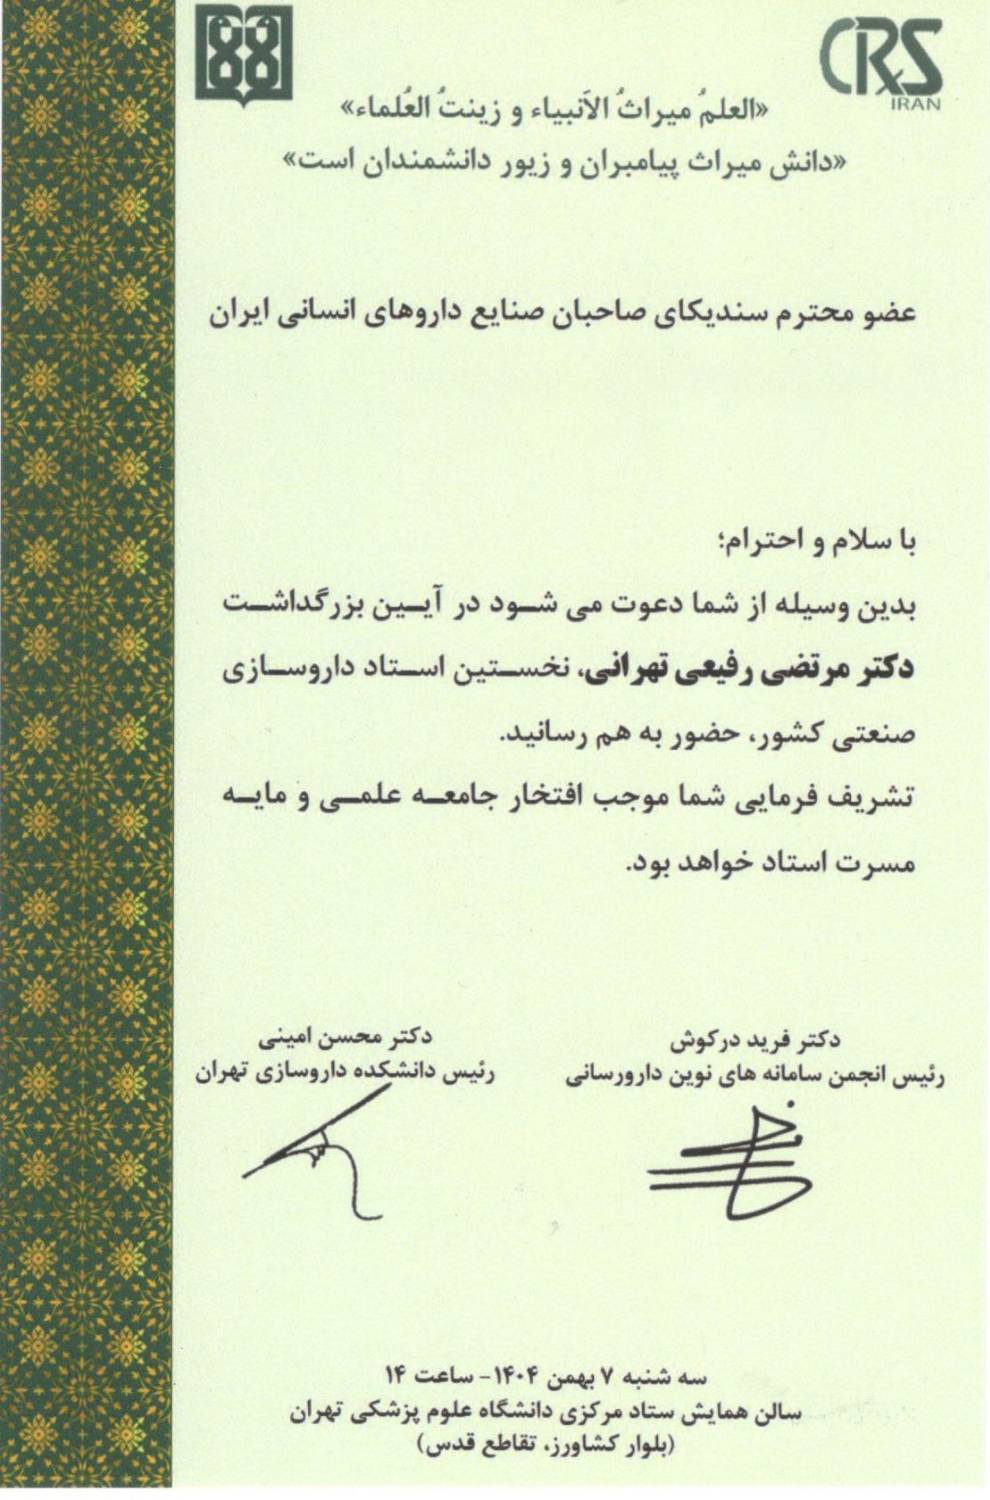 CRS
IRAN
«العلمُ میراثُ الاَنبیاء و زینتُ العُلماء»
«دانش میراث پیامبران و زیور دانشمندان است»
عضو محترم سندیکای صاحبان صنایع داروهای انسانی ایران
با سلام و احترام؛
بدین وسیله از شما دعوت می شود در آیین بزرگداشت
دکتر مرتضی رفیعی تهرانی، نخستین استاد داروسازی
صنعتی کشور، حضور به هم رسانید.
تشریف فرمایی شما موجب افتخار جامعه علمی و مایه
مسرت استاد خواهد بود.
دکتر فرید درکوش
رئیس انجمن سامانه های نوین دارورسانی
دکتر محسن امینی
رئیس دانشکده داروسازی تهران
سه شنبه ۷ بهمن ۱۴۰۴- ساعت ۱۴
سالن همایش ستاد مرکزی دانشگاه علوم پزشکی تهران
(بلوار کشاورز، تقاطع قدس)